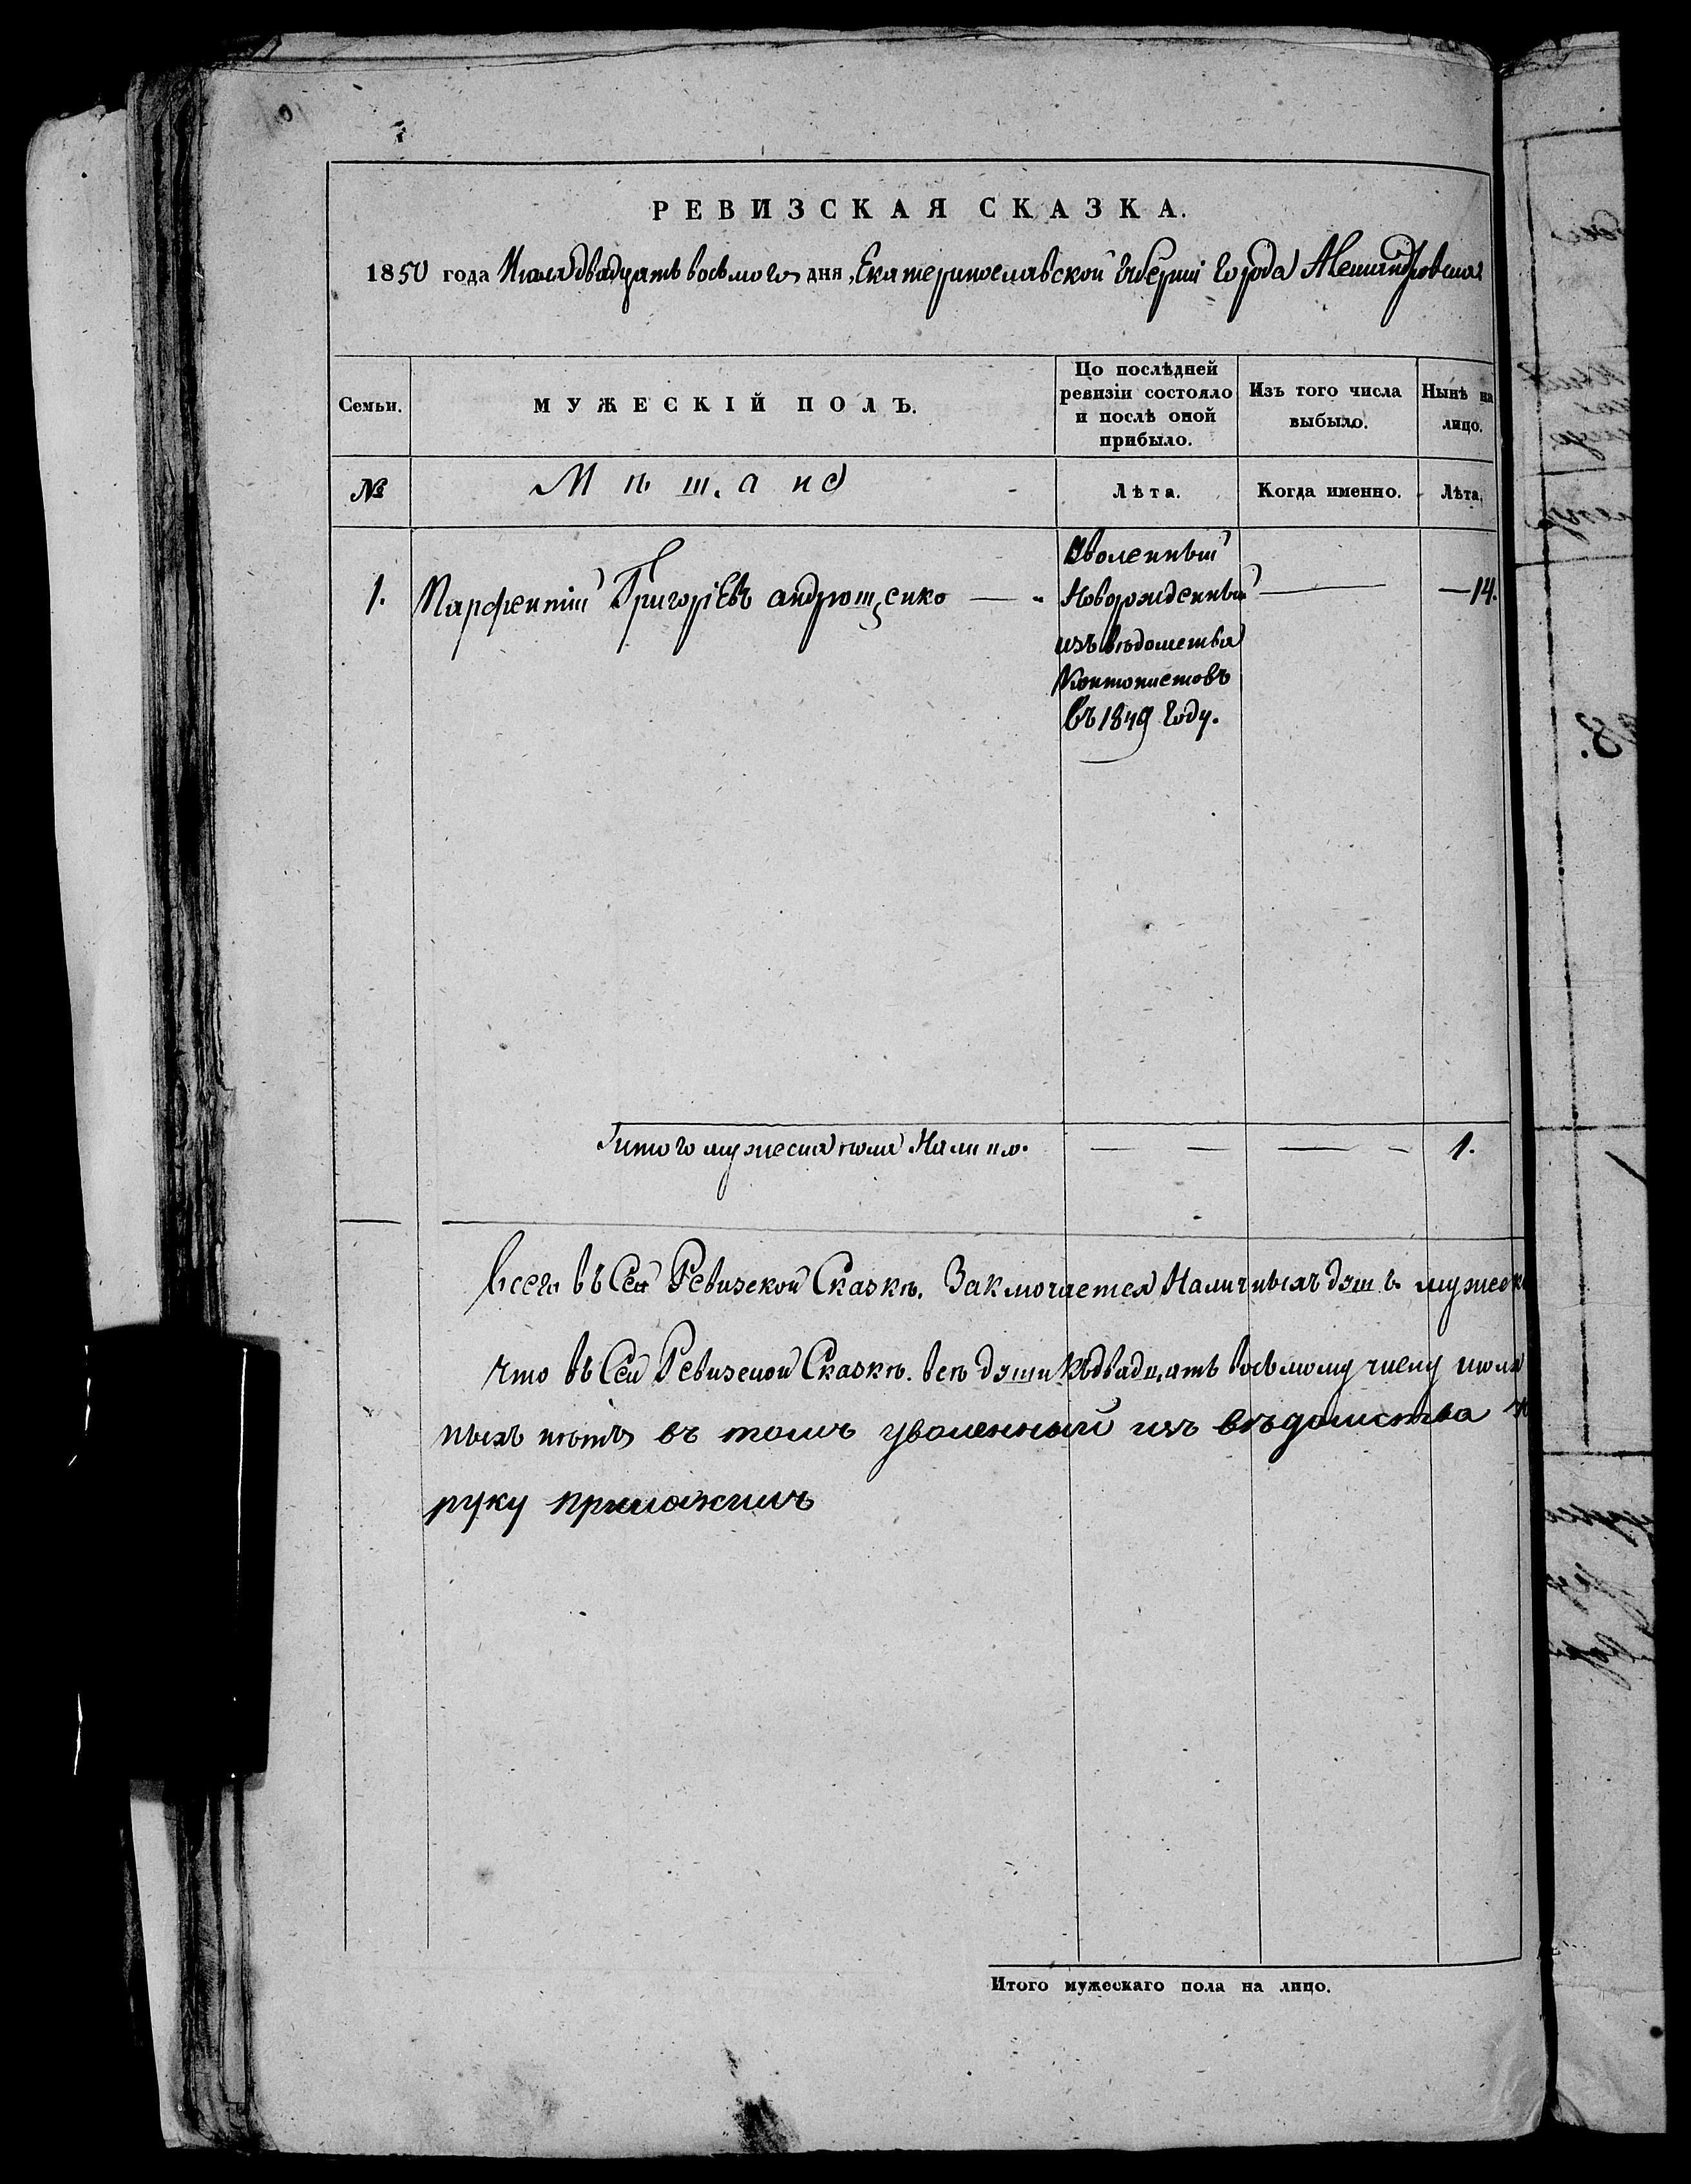 РЕВИЗСКАЯ СКАЗКА.
1850 года Июля двадцать восьмого дня, Екатеринославской Губерніи Города Александровска
Семьи.
МУЖЕСКІЙ ПОЛЪ.
По послѣдней
ревизіи состояло
и послѣ оной
прибыло.
Изъ того числа
выбыло.
Нынѣ на
лицо.
№
Мѣщане
Лѣта.
Когда именно.
Лѣта.
1. Парфентій Григорьевъ Андрющенко
Уволенный
Новорожденный
изъ вѣдомства
Кантонистовъ
въ 1849 Году.
14.
Итого мужеска пола На лицо. 1.
Всего въ Сей Ревизской Сказкѣ. Заключается Наличныхъ душъ мужеска
что въ Сей Ревизской Сказкѣ. всѣ души къ двадцать восьмому числу июля
ныхъ нѣтъ въ томъ уволенный изъ вѣдомства
руку приложилъ
Итого мужескаго пола на лицо.